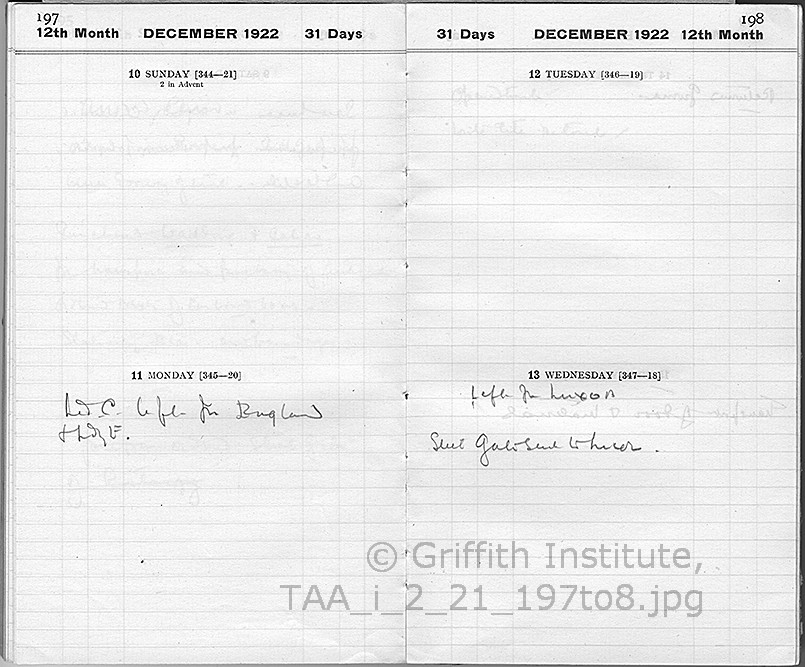 197
12th Month DECEMBER 1922 31 Days
10 SUNDAY [344—21]
2 in Advent
11 MONDAY [345—20]
Ld. C. left for England
& Ldy E.
198
31 Days DECEMBER 1922 12th Month
12 TUESDAY [346—19]
13 WEDNESDAY [347—18]
Left for Luxor
Steel Gate sent to Luxor.
© Griffith Institute,
TAA_i_2_21_197to8.jpg